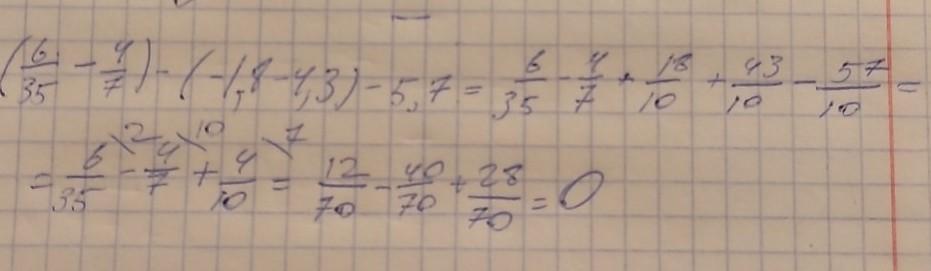 (6/35 - 4/7) - (-1,8 - 4,3) - 5,7 = 6/35 - 4/7 + 18/10 + 43/10 - 57/10 =
= 6/35 \2 - 4/7 \10 + 4/10 \7 = 12/70 - 40/70 + 28/70 = 0